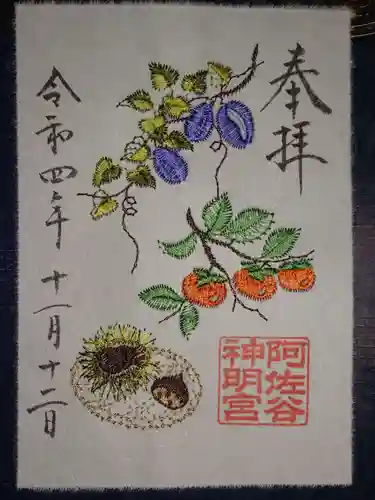 奉拝
令和四年十一月十二日
阿佐谷
神明宮